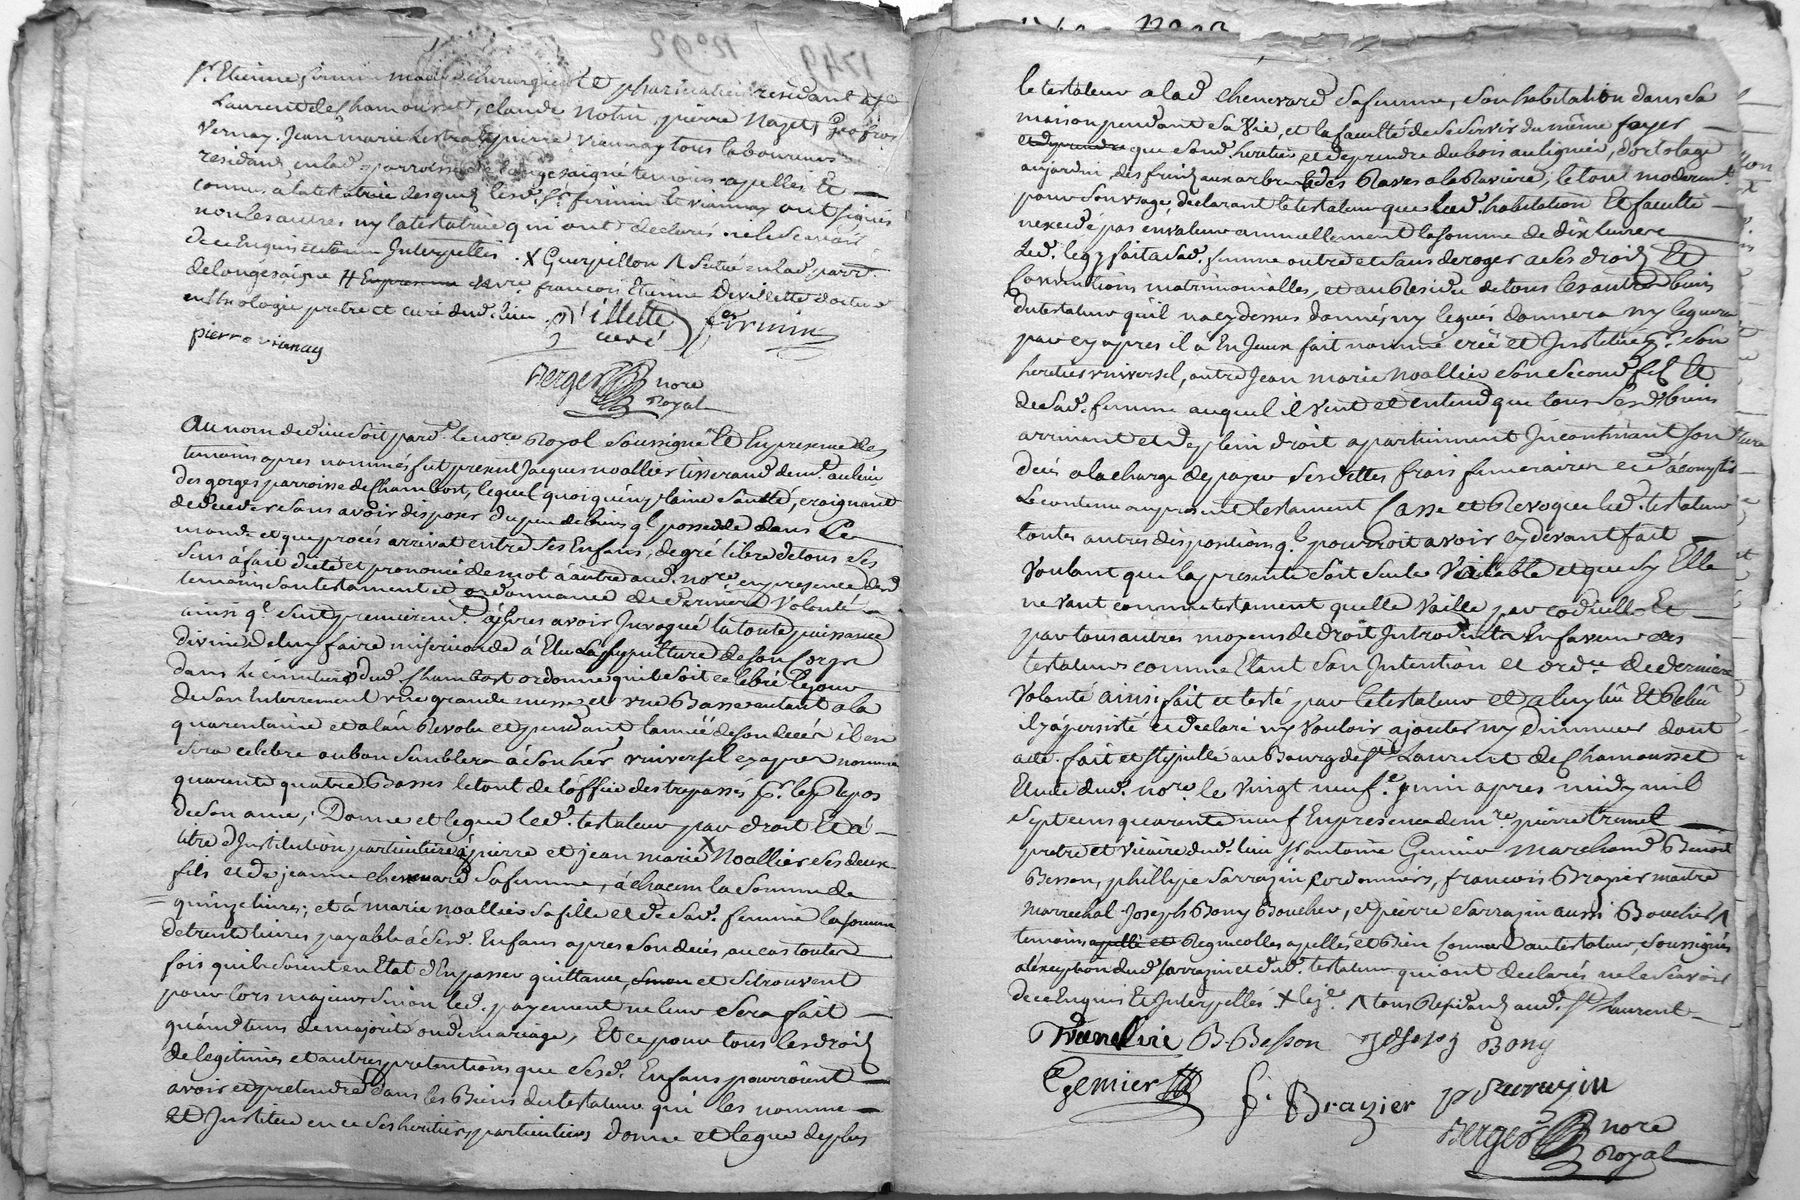 Sr. Etienne firmin maitre chirurgien et pharmatien residant a St
Laurent de Chamousset, claude Notin, pierre Nazet,
Vernay, Jean marie pierre Viannay tous laboureurs
residants en lad. parroisse de longesaigne temoins appellés Et
connus a la testatrice desquels lesd. Sr. firmin et viannay ont signés
non les autres ny la testatrice qui ont declarés ne le Scavoir
de ce Enquis Interpellés. X Guerpillon Λ Situé en lad. parr.
de longesaigne # En presence de Mre. françois Etienne Devillette docteur
en theologie pretre et curé dud. lieu. D'illette firmin
curé
pierre vianay
Berger nore
Royal
Au nom de dieu soit pard. le nore. Royal soussigné Et En presence des
temoins apres nommés fut present Jacques noallier tisserand demt. au lieu
des gorges parroisse de Chambost, lequel quoiqu'en plaine Santé, craignant
de deceder sans avoir disposer du peu de biens ql. possedde dans ce
monde et que procés arrivat entre ses Enfans, de gré libre de tous ses
sens à fait dicté et prononcé de mot à autre aud. nore. en presence desd.
temoins son testament et ordonnance de derniere Volonté
ainsi ql. suit premierement. apres avoir Invoqué la toute puissance
divine de luy faire misericorde à Elu La sepulture de son Corps
dans le cimetiere dud. Chambost ordonne qu'il soit celebré le jour
de son Enterrement une grande messe et une Basse autant a la
quarantaine et a l'an Revolu et pendant l'année de son decés il en
sera celebré au bon sembler à son her. universel cy apres nommé
quarante quatre Basses le tout de l'office des trepassés pr. le Repos
de son ame, Donne et legue led. testateur par droit Et à
titre d'Institution particuliere à pierre et jean marie X Noallier ses deux
fils et de jeanne chenevard sa femme, à chacun la somme de
quinze livres; et à marie noallier sa fille et de Sad. femme la somme
de trente livres payable à Sesd. Enfans apres son decés, au cas toutes
fois qu'ils soient en Etat d'En passer quittance, sinon et se trouvent
pour lors majeurs Sinon led. payement ne leur sera fait
quand tems de majorité ou de mariage, Et ce pour tous les droits
de legitimes et autres pretentions que Sesd. Enfans pourroient
avoir et pretendre dans les Biens du testateur qui les nomme
et Institue en ce ses heritiers particuliers donne et legue de plus
le testateur a lad. Chenevard sa femme, son habitation dans sa
maison pendant sa Vie, et la faculté de se servir du même foyer
et de prendre que sond. heritier, et de prendre du bois au lignier, d'ortolage
au jardin, des fruits aux arbres et des Raves a la Raviere; le tout moderemt.
pour son usage, declarant le testateur que lad. habitation Et faculté
n'excede pas en valeur annuellement la somme de dix livres
Led. legs fait a Sad. femme outre et sans deroger a ses droits Et
Conventions matrimonialles, et au Residu de tous les autres biens
du testateur qu'il n'a cy dessus donnés, ny legués donnera ny leguera
par cy apres il a En Jceux fait nommé créé et Institué pr. son
heritier universel, autre Jean marie Noallier son second fils Et
de Sad. femme auquel il veut et entend que tous Sesd. biens
arrivant et de plein droit apartiennent Incontinant son
deces a la charge de payer ses dettes frais funeraires et d'acomplir
Le contenu au present testament Casse et Revoque led. testateur
toutes autres dispositions ql. pourroit avoir cy devant fait
Voulant que la presente soit seule Vallable et que sy Elle
ne vaut comme testament quelle Vaille par codicille Et
par tous autres moyens de droit Introduits En faveur des
testateurs comme Etant son Intention et ordce. de derniere
Volonté ainsi fait et testé par le testateur et a luy lû Et Relû
il y a persisté et declaré n'y Vouloir ajouter ny diminuer dont
acte. fait et stipullé au Bourg de St. Laurent de Chamousset
Etude dud. nore. le Vingt neufe. juin apres midy mil
Sept cens quarante neuf En presence de mre. pierre trunel
pretre et vicaire dud. lieu Sr. antoine Gemier marchand Benoit
Besson, phillipe Sarrazin Cordonniers, françois Brazier maitre
marrechal Joseph Bony Boucher, et pierre Sarrazin aussi Boucher Λ
temoins appellé et Regnicolles appellés et Bien Connus au testateur, soussignés
a l'exception dud. Sarrazin et dud. testateur qui ont declarés ne le Scavoir
de ce Enquis Et Interpellés X leje. Λ tous Residants aud. St. Laurent
B. Besson Joseph Bony
Gemier f. Brazier p Sarrazin
Berger nore
Royal